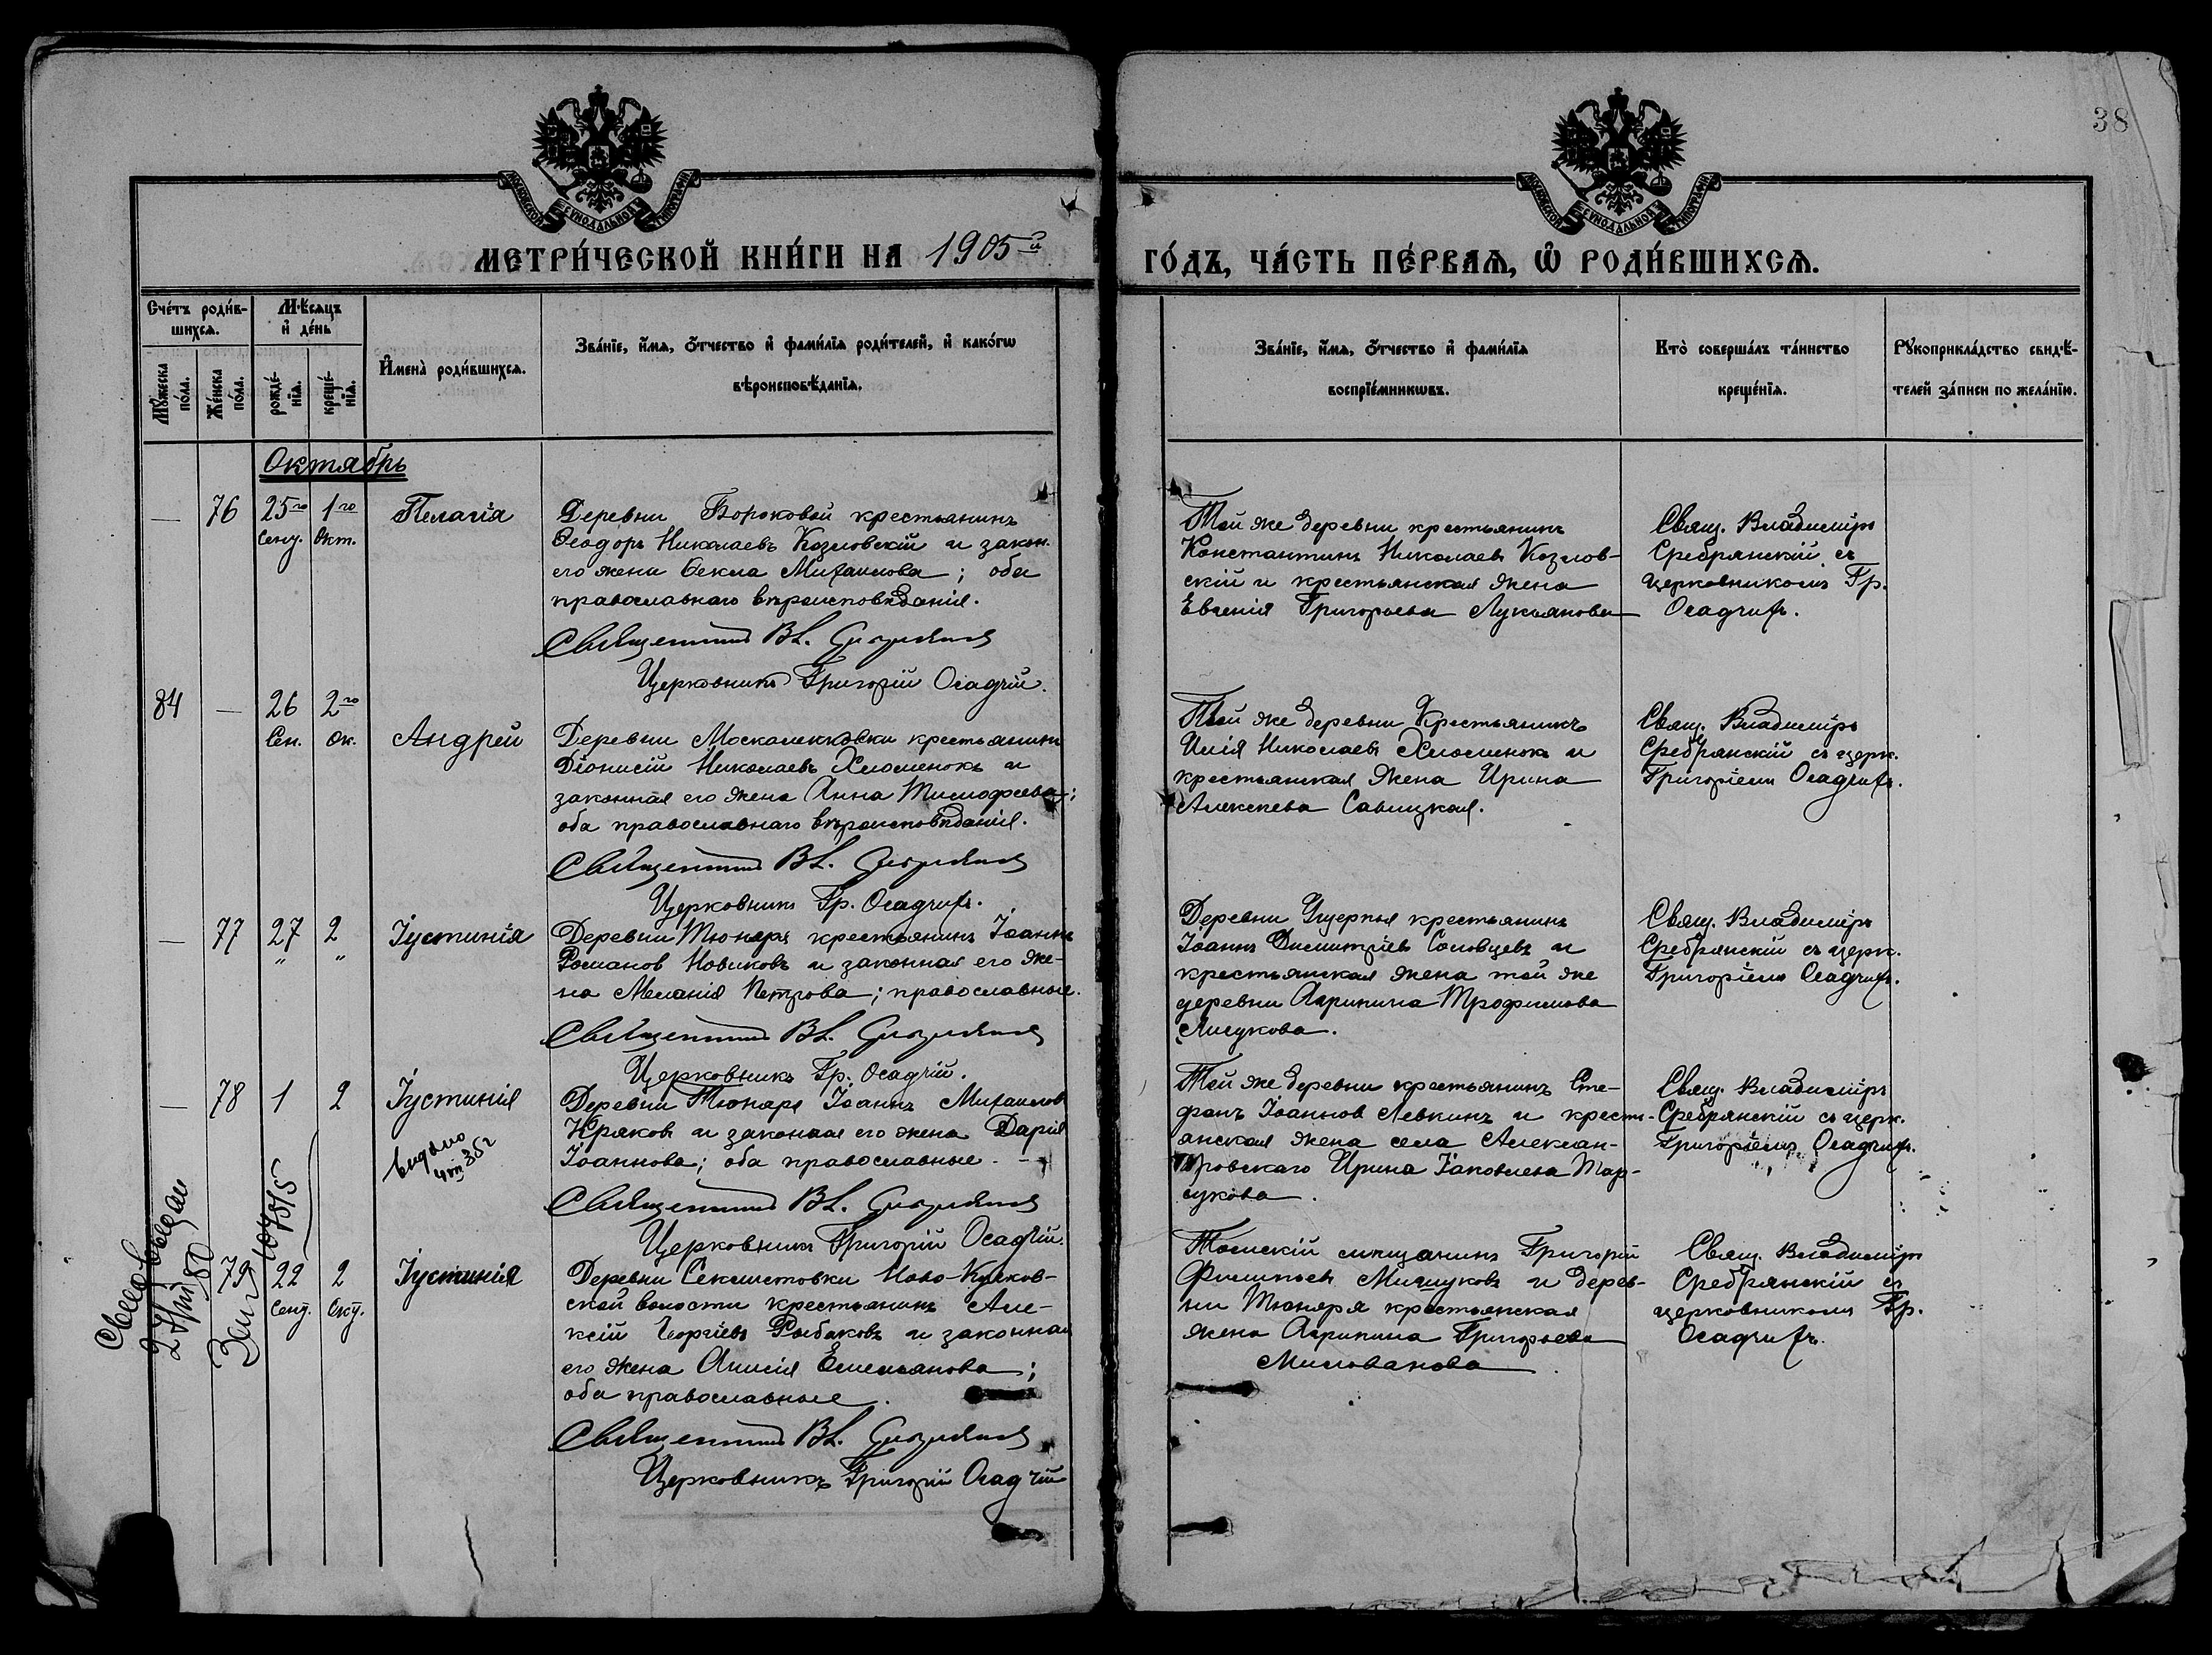 38
МОСКОВСКОЙ СѴНОДАЛЬНОЙ ТИПОГРАФІИ
МОСКОВСКОЙ СѴНОДАЛЬНОЙ ТИПОГРАФІИ
МЕТРИ́ЧЕСКОЙ КНИ́ГИ НА 1905й
ГО́ДЪ, ЧА́СТЬ ПЕ́РВАѦ, Ѡ҆ РОДИ́ВШИХСѦ.
Сче́тъ роди́в-
шихсѧ.
Мꙋ́жеска по́ла.
Же́нска по́ла.
Мѣ́сѧцъ
и҆ де́нь
рожде́-
нїѧ.
креще́-
нїѧ.
И҆мена̀ роди́вшихсѧ.
Зва́нїе, и҆́мѧ, ѻ҆́тчество и҆ фами́лїѧ роди́телей, и҆ како́гѡ
вѣроисповѣ́данїѧ.
Зва́нїе, и҆́мѧ, ѻ҆́тчество и҆ фами́лїѧ
воспрїе́мникѡвъ.
Кто̀ соверша́лъ та́инство
креще́нїѧ.
Рꙋкоприкла́дство свидѣ́-
телей за́писи по жела́нїю.
Октябрь
— 76 25го 1го Пелагія
Сент. Окт.
Деревни Бороковой крестьянинъ
Ѳеодоръ Николаевъ Козловскій и закон.
его жена Ѳекла Михаилова; оба
православнаго вѣроисповѣданія.
Священникъ Вл.
Церковникъ Григорій Осадчій.
Той же деревни крестьянинъ
Константинъ Николаевъ Козлов-
скій и крестьянская жена
Евгенія Григорьева Лукьянова
Свящ. Владиміръ
Сребрянскій съ
церковникомъ Гр.
Осадчимъ.
84 — 26 2го
Сен. Ок. Андрей
Деревни Москалековки крестьянинъ
Діонисій Николаевъ Хломенокъ и
законная его жена Анна Тимофеева;
оба православнаго вѣроисповѣданія.
Священникъ Вл.
Церковникъ Гр. Осадчій.
Той же деревни крестьянинъ
Илія Николаевъ Хломенокъ и
крестьянская жена Ирина
Алексѣева Савицкая.
Свящ. Владиміръ
Сребрянскій съ церк.
Григоріемъ Осадчимъ.
— 77 27 2 Іустинія
" "
Деревни Тюняря крестьянинъ Іоаннъ
Романов Новиковъ и законная его же-
на Меланія Петрова; православные.
Священникъ Вл.
Церковникъ Гр. Осадчій.
Деревни Ущерпья крестьянинъ
Іоаннъ Димитріевъ Соловцевъ и
крестьянская жена той же
деревни Агрипина Трофимова
Лисукова.
Свящ. Владиміръ
Сребрянскій съ церк.
Григоріемъ Осадчимъ.
— 78 1 2 Іустинія
Деревни Тюняря Іоаннъ Михаилов
Кряковъ и законная его жена Дарія
Іоаннова; оба православные.
Священникъ Вл.
Церковникъ Григорій Осадчій.
Той же деревни крестьянинъ Сте-
фанъ Іоаннов Левкинъ и крест-
анская жена села Алексан-
дровскаго Ирина Іаковлева Мар-
чукова.
Свящ. Владиміръ
Сребрянскій съ церк.
Григоріемъ Осадчимъ.
79 22 2 Іустинія
Сент. Окт.
Деревни Секлистовки Ново-Кусков-
ской волости крестьянинъ Але-
ксій Георгіевъ Рыбаковъ и законная
его жена Анисія Емельянова;
оба православные.
Священникъ Вл.
Церковникъ Григорій Осадчій
Томскій мѣщанинъ Григорій
Филипьевъ Мишуковъ и дерев-
ни Тюняря крестьянская
жена Агрипина Григорьева
Милованова
Свящ. Владиміръ
Сребрянскій съ
церковникомъ Гр.
Осадчимъ.